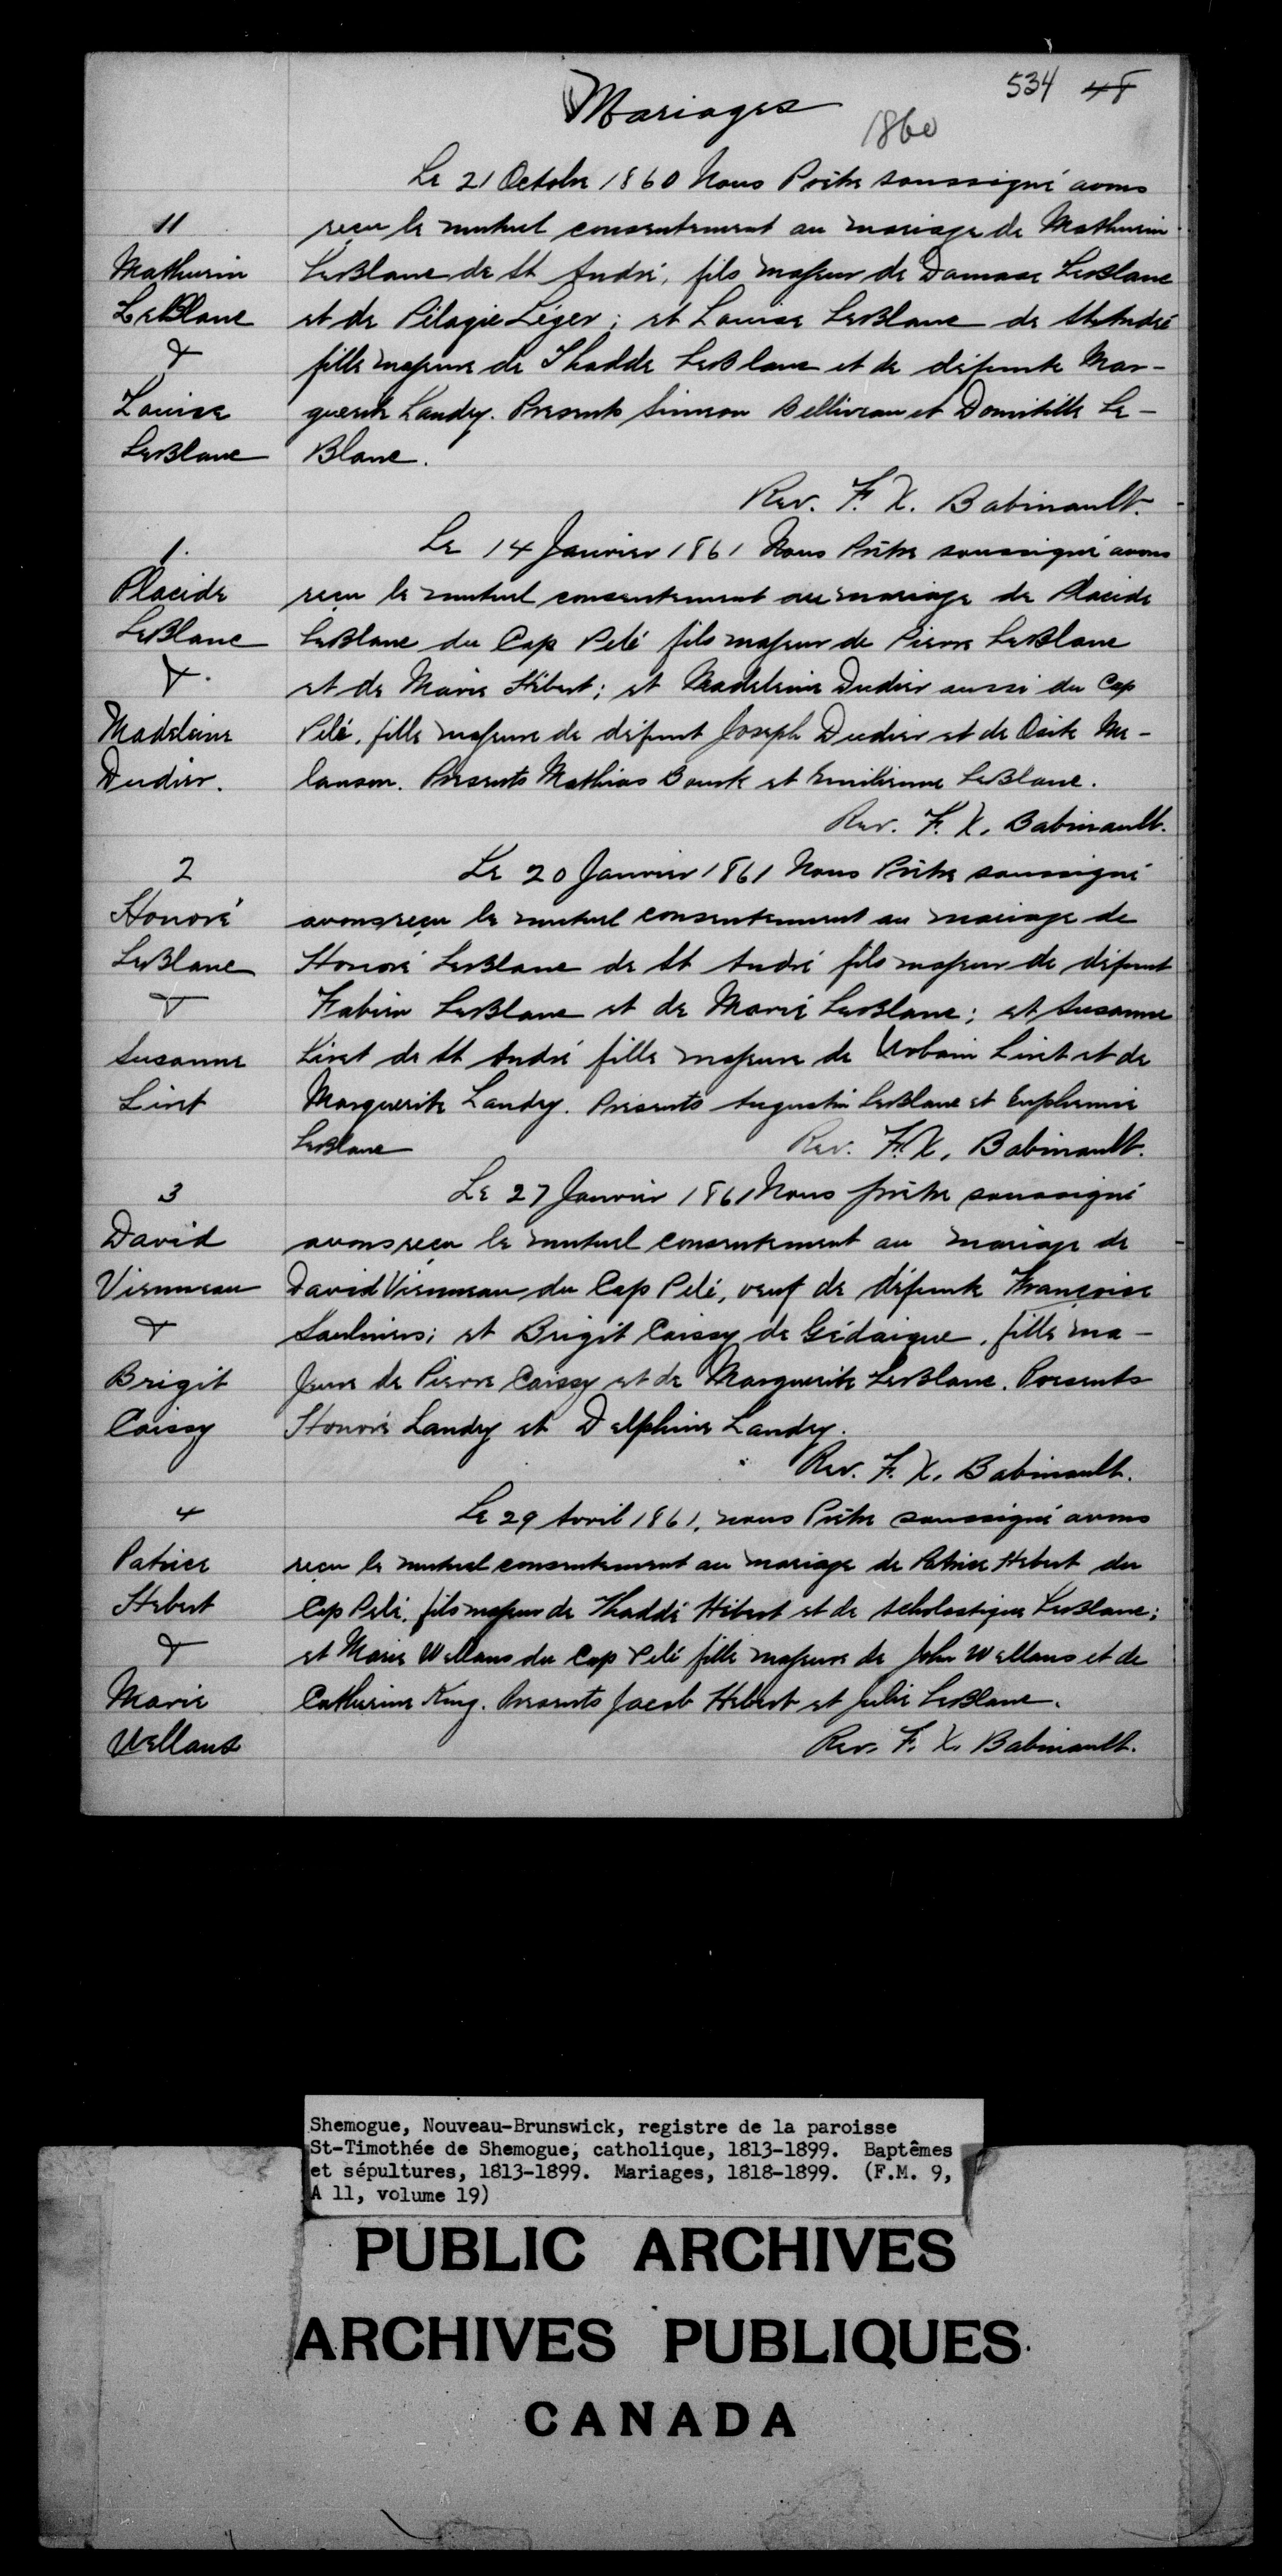 534 48
Mariages
1860
Le 21 Octobre 1860 Nous Prêtre soussigné avons
11
reçu le mutuel consentement au mariage de Mathurin
Mathurin
LeBlanc de St André, fils majeur de Damase LeBlanc
LeBlanc
et de Pélagie Léger; et Louise LeBlanc de St André
&
fille majeure de Thadde LeBlanc et de défunte Mar-
Louise
guerite Landry. Presents Simeon Belliveau et Domitille Le-
LeBlanc
Blanc.
Rev. F. X. Babinault.
Le 14 Janvier 1861 Nous Prêtre soussigné avons
1.
Placide
reçu le mutuel consentement au mariage de Placide
LeBlanc
LeBlanc du Cap Pelé fils majeur de Pierre LeBlanc
&.
et de Marie Hébert; et Madeleine Dudier aussi du Cap
Madeleine
Pelé, fille majeure de défunt Joseph Dudier et de Osite Me-
Dudier.
lanson. Presents Mathias Bourk et Emilienne LeBlanc.
Rev. F. X. Babinault.
2
Le 20 Janvier 1861 Nous Prêtre soussigné
Honoré
avons reçu le mutuel consentement au mariage de
LeBlanc
Honoré LeBlanc de St André fils majeur de défunt
&
Fabien LeBlanc et de Marie LeBlanc; et Susanne
Susanne
Liret de St André fille majeure de Urbain Liret et de
Liret
Marguerite Landry. Presents Augustin LeBlanc et Euphemie
LeBlanc
Rev. F. X. Babinault.
3
Le 27 Janvier 1861 Nous prêtre soussigné
David
avons reçu le mutuel consentement au mariage de
Vienneau
David Vienneau du Cap Pelé, veuf de défunte Françoise
&
Saulniers; et Brigit Caissy de Gédaique, fille ma-
Brigit
jeure de Pierre Caissy et de Marguerite LeBlanc. Presents
Caissy
Honoré Landry et Delphine Landry.
Rev. F. X. Babinault.
4
Le 29 Avril 1861, nous Prêtre soussigné avons
Patrice
reçu le mutuel consentement au mariage de Patrice Hebert du
Hebert
Cap Pelé, fils majeur de Thaddé Hébert et de Scholastique LeBlanc;
&
et Marie Wellans du Cap Pelé fille majeure de John Wellans et de
Marie
Catherine King. Presents Jacob Hebert et Julie LeBlanc.
Wellans
Rev. F. X. Babinault.
Shemogue, Nouveau-Brunswick, registre de la paroisse
St-Timothée de Shemogue, catholique, 1813-1899. Baptêmes
et sépultures, 1813-1899. Mariages, 1818-1899. (F.M. 9,
A 11, volume 19)
PUBLIC ARCHIVES
ARCHIVES PUBLIQUES
CANADA